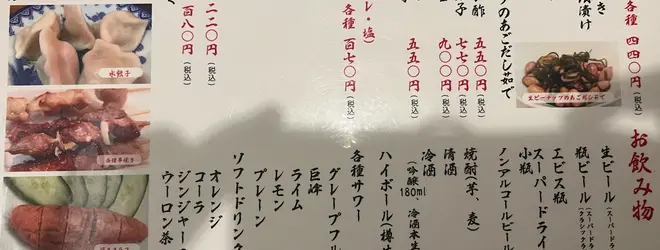 き
漬け
各種 四四〇円(税込)
のあごだし茹で
酢 五五〇円(税込)
子 七七〇円(税込)
九〇〇円(税込)
五五〇円(税込)
レ・塩)
各種 百七〇円(税込)
二二〇円(税込)
百八〇円(税込)
水餃子
生ピーナッツのあごだし茹で
各種串焼き
お飲み物
生ビール
瓶ビール
エビス瓶
スーパードライ
小瓶
ノンアルコールビール
焼酎(芋、麦)
清酒
冷酒
(吟醸 180ml
ハイボール(樽
各種サワー
グレープフル
巨峰
レモン
ライム
プレーン
ソフトドリンク
オレンジ
コーラ
ジンジャー
ウーロン茶